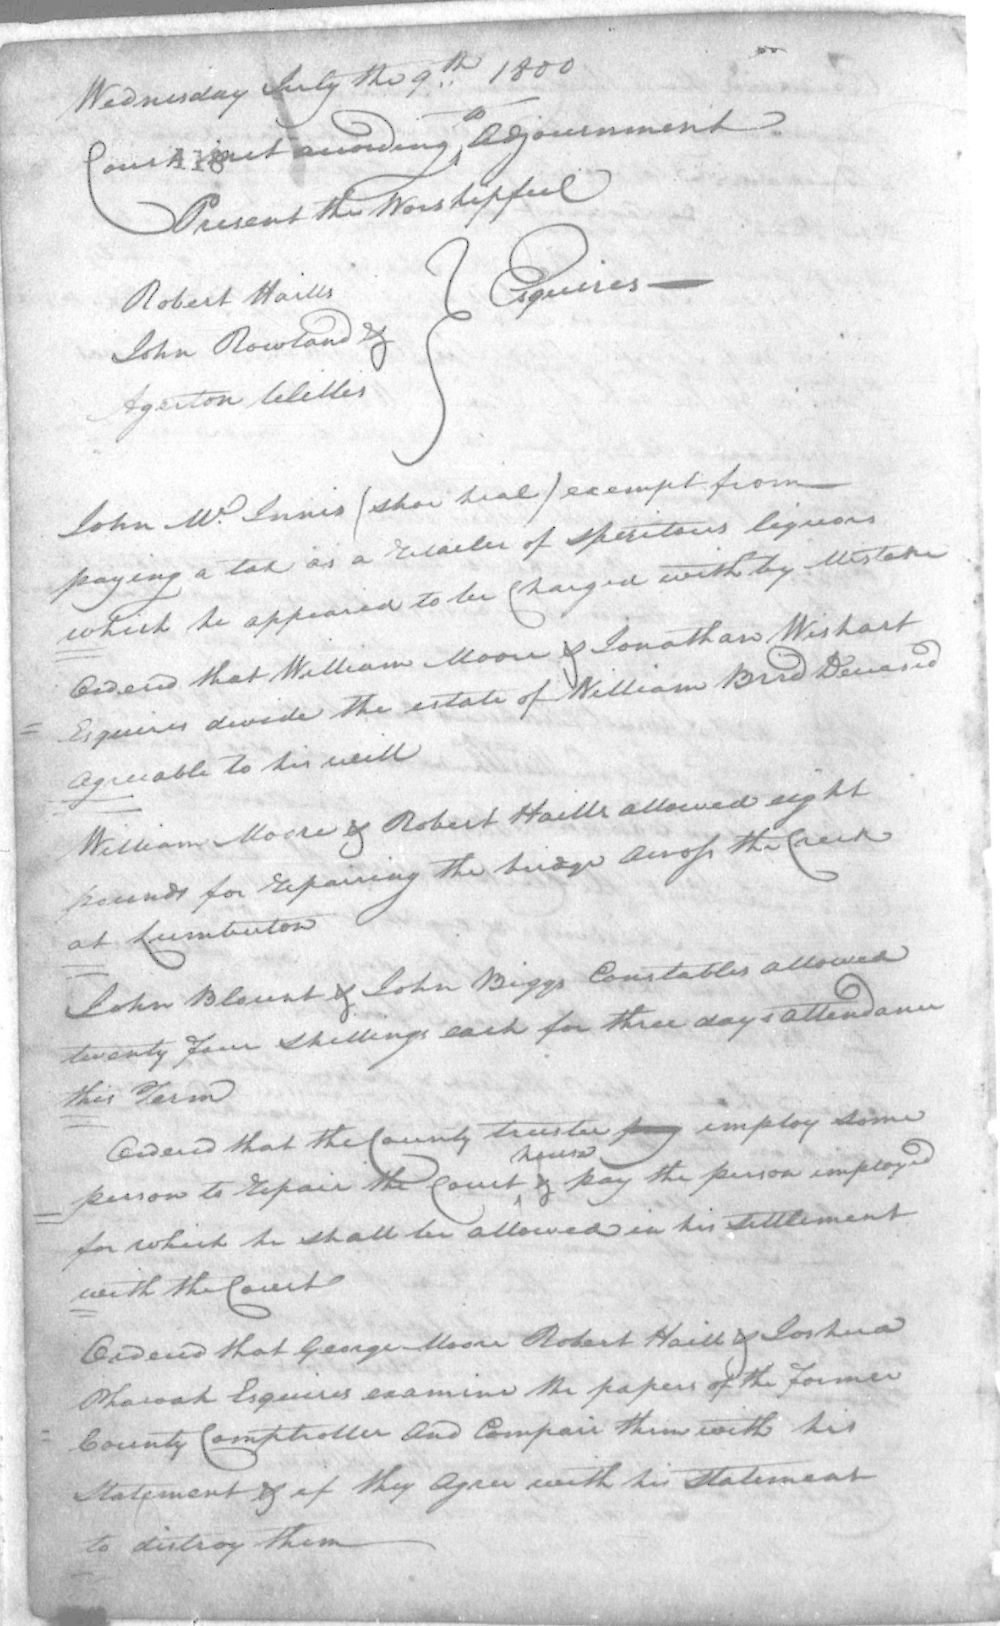 Wednesday July the 9th 1800
Court met according to Adjournment
118
Present the Worshipfull
Robert Hails
John Rowland &
Agerton Willis
Esquires —
John Mc Innis (shoe heal) exempt from
paying a tax as a Retailer of Speritous liquors
which he appeared to be Charged with by Mistake
Ordered that William Moore & Jonathan Wishart
Esquires devide the estate of William Bird Deceasd
agreeable to his will
William Moore & Robert Hails allowed eight
pounds for Repairing the bridge across the Creek
at Lumberton
John Blount & John Biggs Constables allowed
twenty Four Shillings each for three days attendance
this Term
Ordered that the County trustee pay employ some
house
person to Repair the Court & pay the person imployed
for which he shall be allowed in his settlement
with the Court
Ordered that George Moore Robert Haill & Joshua
Pharoah Esquires examine the papers of the Former
County Comptroller and Compair them with his
Statement & if they agree with his Statement
to distroy them